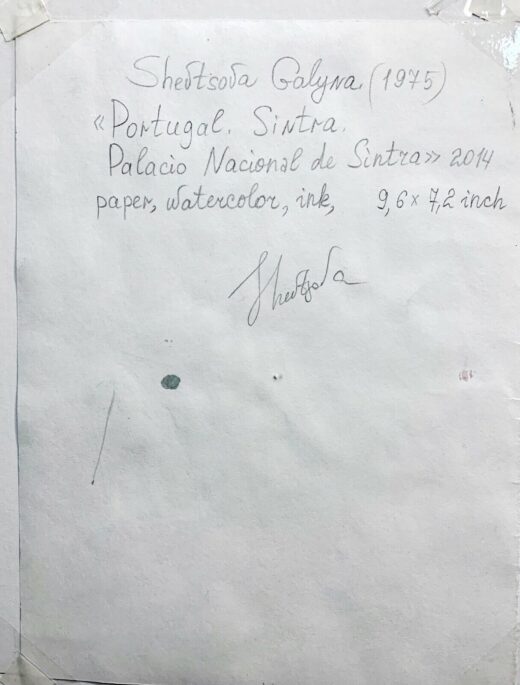 Shevtsova Galyna (1975)
«Portugal. Sintra.
Palacio Nacional de Sintra» 2014
paper, watercolor, ink, 9,6 x 7,2 inch
Shevtsova